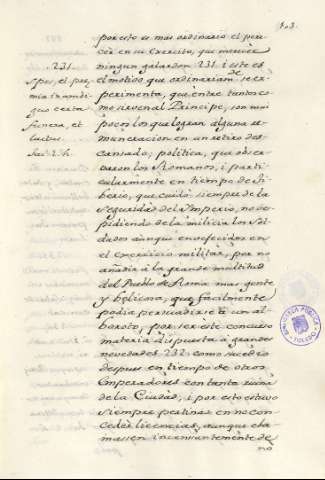 103.
por esto es mas ordinario el pere-
cer en su Exercito, que merecer
ningun galardon 231. i este es
el motivo que ordinariam.te se ex-
perimenta, que entre tantos co-
mo sirven al Principe, son mui
pocos los que logran alguna re-
muneracion en un retiro des-
cansado; politica, que obser-
varon los Romanos, i parti-
cularmente en tiempo de Ti-
berio, que cuidò siempre de la
seguridad de su Imperio, no des-
pidiendo de la milicia los Sol-
dados aunque envegecidos en
el exercicio militar, por no
añadir à la grande multitud
del Pueblo de Roma mas gente
y belicosa, que facilmente
podia persuadirse à un al-
boroto, por ser este concurso
materia dispuesta à grandes
novedades 232. como sucediò
despues en tiempo de otros
Emperadores con tanta ruina
de la Ciudad; i por esto estuvo
siempre pertinaz en no con-
ceder licencias, aunque cla-
masen incesantemente de
no
231.
Spes, et prę-
mia in ambi-
guo certa
funera, et
luctus.
BIBLIOTECA PUBLICA
TOLEDO